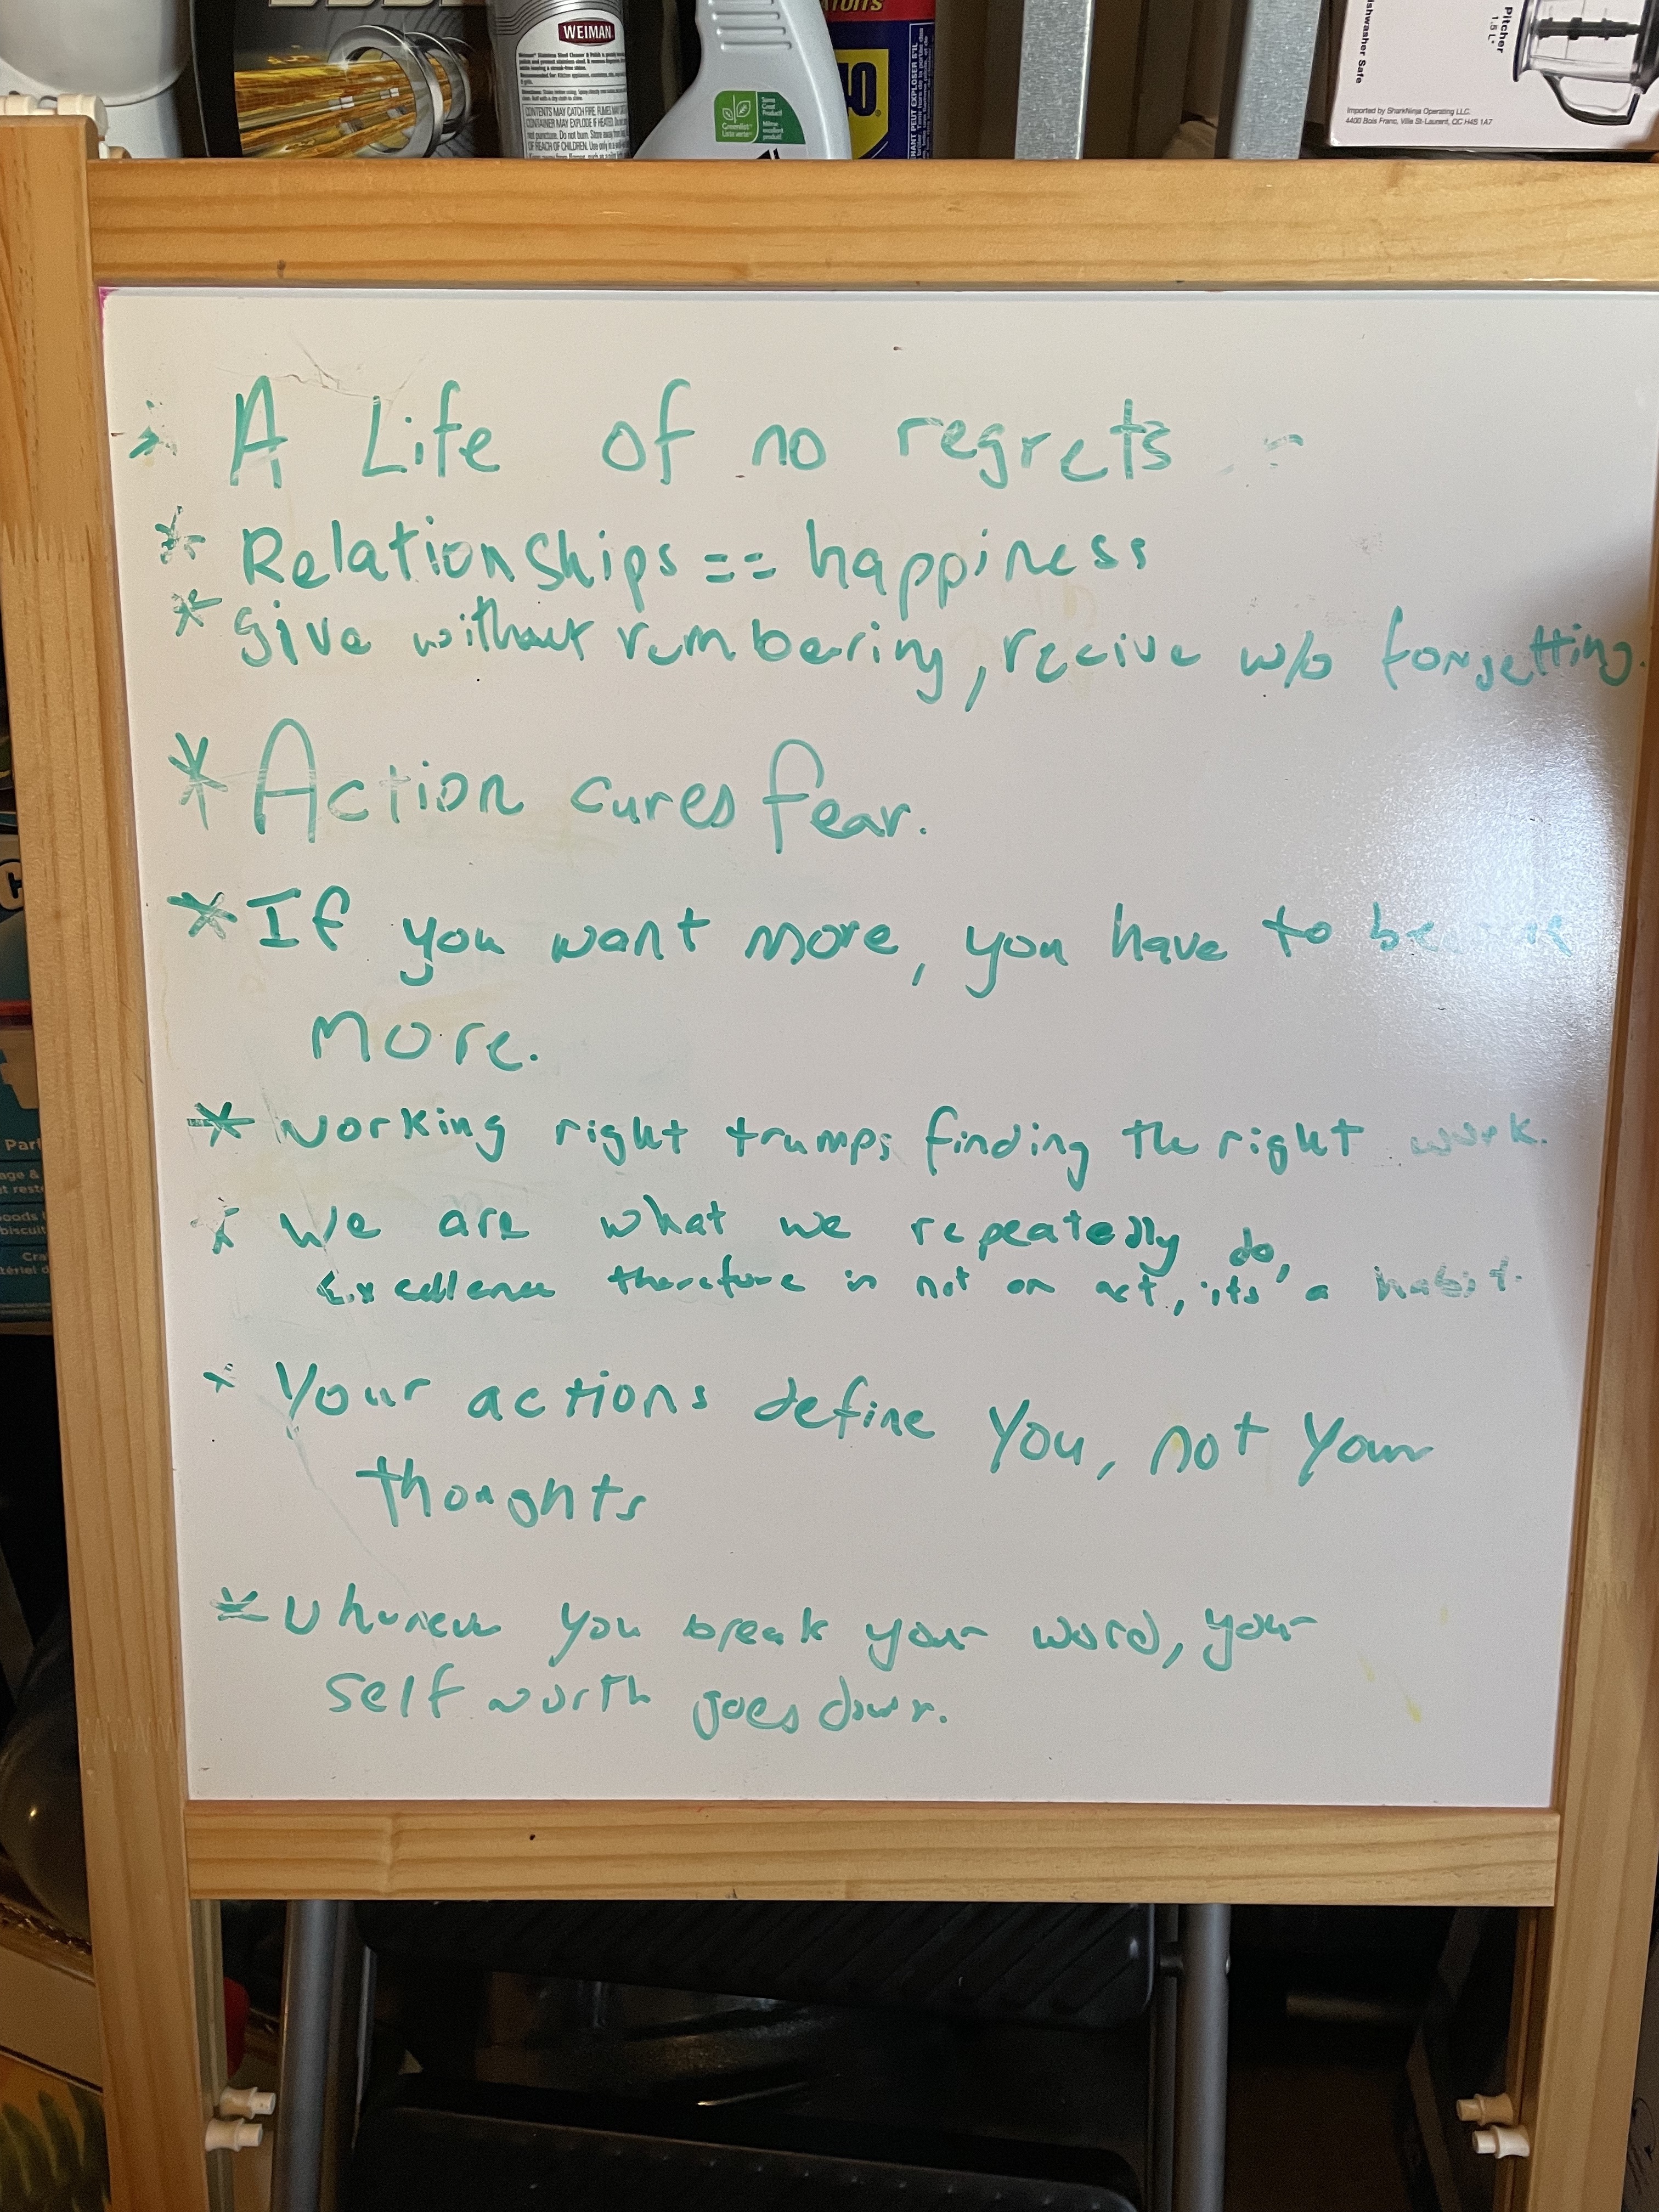 WEIMAN
CONTENTS MAY CATCH FIRE, FUMES MAY
CONTAINER MAY EXPLODE IF HEATED.
OF REACH OF CHILDREN.
Same
Great
Product!
Même
excellent
produit!
Pitcher
1.5 L*
ishwasher Safe
Imported by SharkNinja Operating LLC.
4400 Bois Franc, Ville St-Laurent, QC H4S 1A7
* A Life of no regrets
* Relationships == happiness
* Give without rembering, recive w/o forgetting.
* Action cures fear.
* If you want more, you have to become
more.
* Working right trumps finding the right work.
* We are what we repeatedly do,
Excellence therefore is not an act, its' a habit.
* Your actions define you, not your
thoughts
* Whenever you break your word, your
self worth goes down.